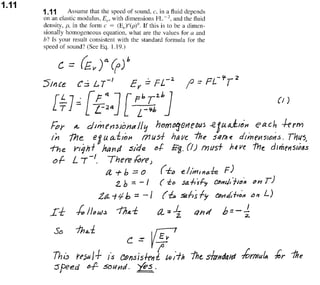 1.11
1.11 Assume that the speed of sound, c, in a fluid depends
on an elastic modulus, Eᵥ, with dimensions FL⁻², and the fluid
density, ρ, in the form c = (Eᵥ)ᵃ(ρ)ᵇ. If this is to be a dimen-
sionally homogeneous equation, what are the values for a and
b? Is your result consistent with the standard formula for the
speed of sound? (See Eq. 1.19.)
c = (Eᵥ)ᵃ(ρ)ᵇ
Since c ≐ LT⁻¹ Eᵥ ≐ FL⁻² ρ ≐ FL⁻⁴T²
[L/T] ≐ [Fᵃ/L²ᵃ] [FᵇT²ᵇ/L⁴ᵇ] (1)
For a dimensionally homogeneous equation each term
in the equation must have the same dimensions. Thus,
the right hand side of Eq. (1) must have the dimensions
of LT⁻¹. Therefore,
a + b = 0 (to eliminate F)
2b = -1 (to satisfy condition on T)
2a + 4b = -1 (to satisfy condition on L)
It follows that a = 1/2 and b = -1/2
So that
c = √(Eᵥ/ρ)
This result is consistent with the standard formula for the
speed of sound. Yes.